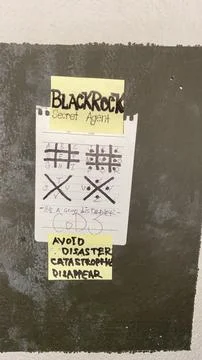 BLACKROCK
Secret Agent
BE A GOOD LISTENER
CODS
AVOID
DISASTER
CATASTROPHIC
DISAPPEAR